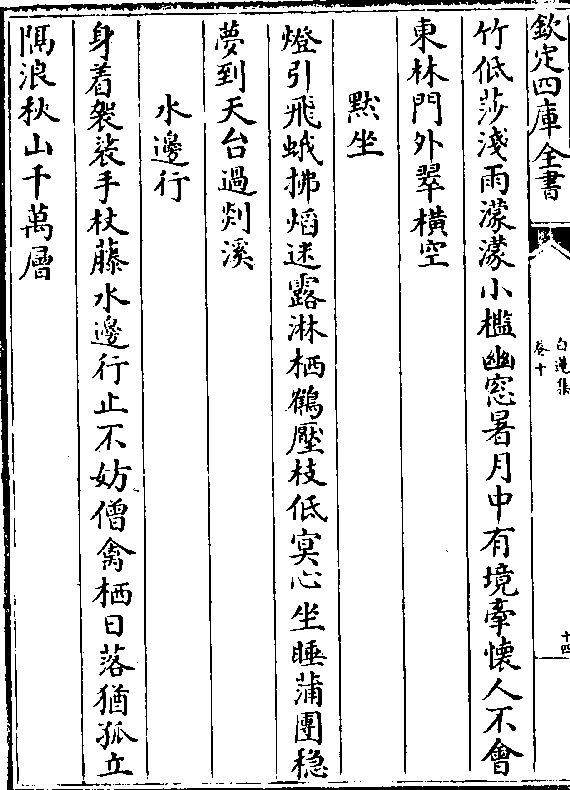 欽定四庫全書
白蓮集
卷十
十四
竹低莎淺雨濛濛小檻幽窓暑月中有境牽懷人不會
東林門外翠橫空
黙坐
燈引飛蛾拂熖迷露淋栖鶴壓枝低冥心坐睡蒲團穏
夢到天台過剡溪
水邊行
身着袈裟手杖藤水邊行止不妨僧禽栖日落猶孤立
隔浪秋山千萬層